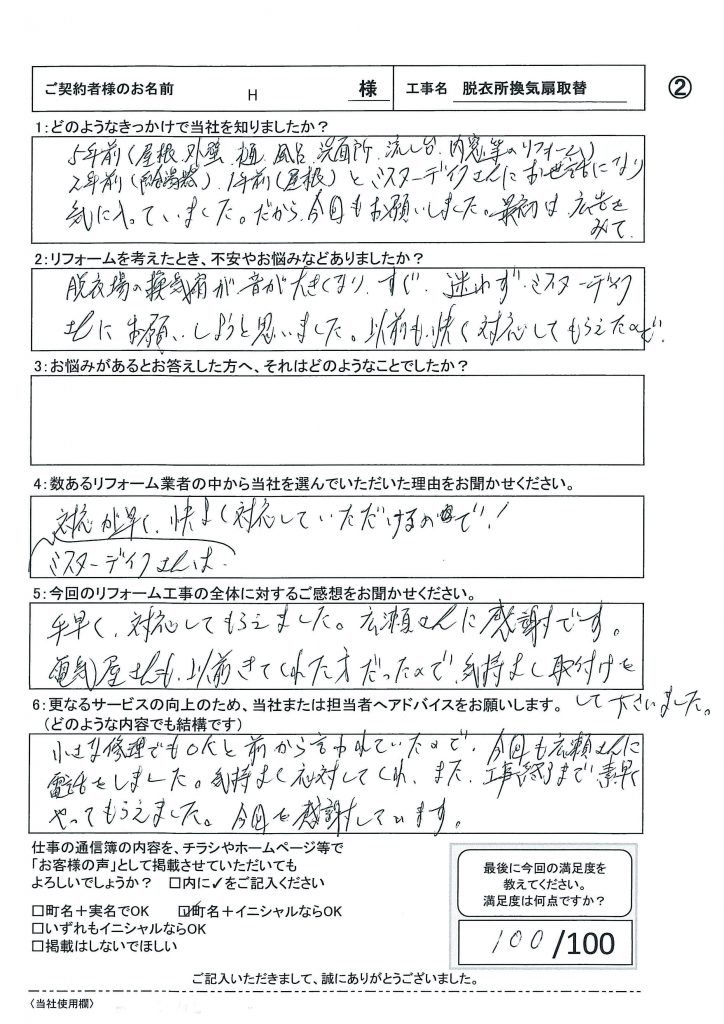 ご契約者様のお名前 H 様 工事名 脱衣所換気扇取替 ②
1:どのようなきっかけで当社を知りましたか?
5年前(屋根.外壁.樋.風呂.洗面所.流し台.内窓等のリフォーム)
2年前(給湯器).1年前(屋根)とミスターデイクさんにお世話になり
気に入っていました。だから今回もお願いしました。最初は広告を
みて.
2:リフォームを考えたとき、不安やお悩みなどありましたか?
脱衣場の換気扇が音が大きくなり.すぐ.迷わず.ミスターデイク
さんにお願いしようと思いました。以前も.快く対応してもらえたので.
3:お悩みがあるとお答えした方へ、それはどのようなことでしたか?
4:数あるリフォーム業者の中から当社を選んでいただいた理由をお聞かせください。
対応が早く.快よく対応していただけるので!
ミスターデイクさんは.
5:今回のリフォーム工事の全体に対するご感想をお聞かせください。
手早く.対応してもらえました。広瀬さんに感謝です。
電気屋さんも.以前きてくれた方だったので.気持よく取付けを
して下さいました。
6:更なるサービスの向上のため、当社または担当者へアドバイスをお願いします。
(どのような内容でも結構です)
小さな修理でもOKと前から言われていたので.今回も広瀬さんに
電話をしました。気持よく応対してくれ、また.工事終了まで素早く
やってもらえました。今回も感謝しています。
仕事の通信簿の内容を、チラシやホームページ等で
「お客様の声」として掲載させていただいても
よろしいでしょうか? □内に✓をご記入ください
□町名+実名でOK ☑町名+イニシャルならOK
□いずれもイニシャルならOK
□掲載はしないでほしい
最後に今回の満足度を
教えてください。
満足度は何点ですか?
100/100
ご記入いただきまして、誠にありがとうございました。
〈当社使用欄〉